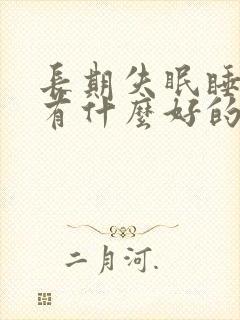 長期失眠睡
有什麼好的
二月河.